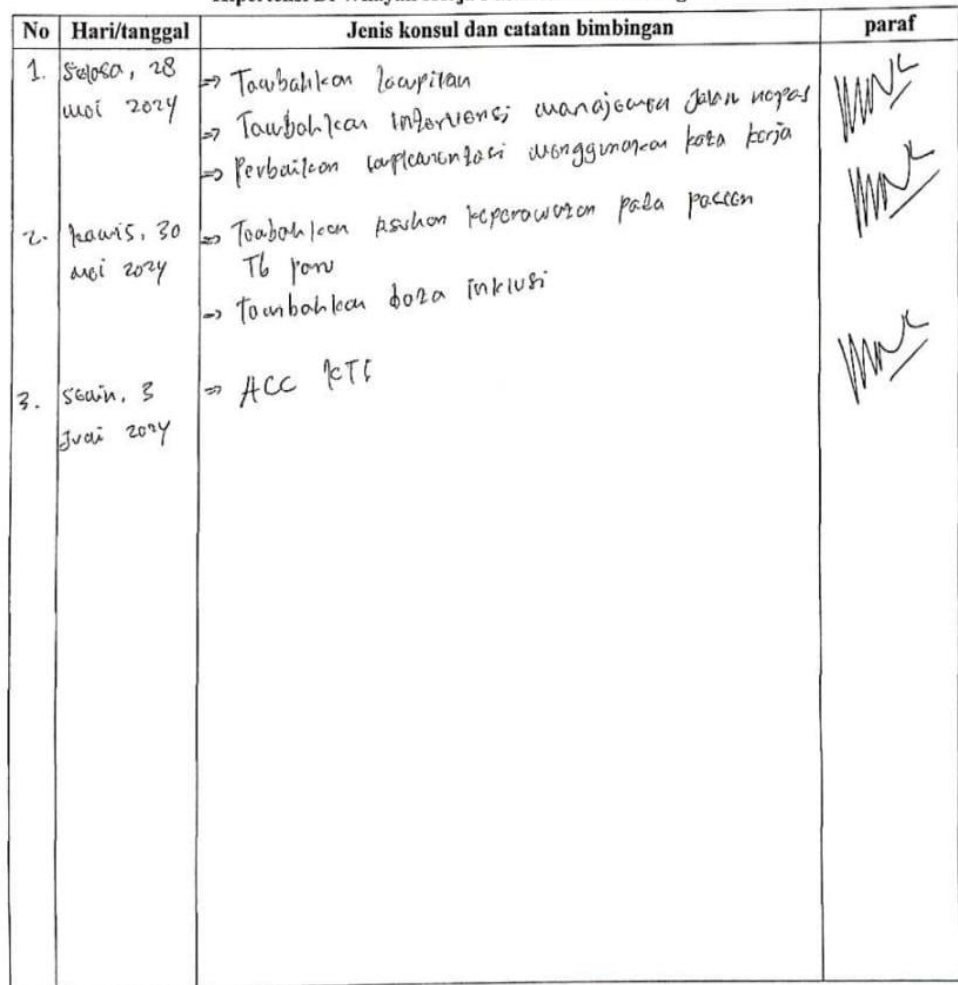 No Hari/tanggal Jenis konsul dan catatan bimbingan paraf
1. Selasa, 28 mei 2024
=> Tambahkan lampiran
=> Tambahkan intervensi manajemen jalan napas
=> Perbaikan implementasi menggunakan kata kerja
2. kamis, 30 mei 2024
=> Tambahkan asuhan keperawatan pada pasien
Tb paru
=> tambahkan data inklusi
3. senin, 3 Juni 2024
=> ACC KTI